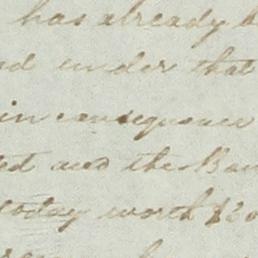 has already
under that
in consequence
and the Ban
today worth $30